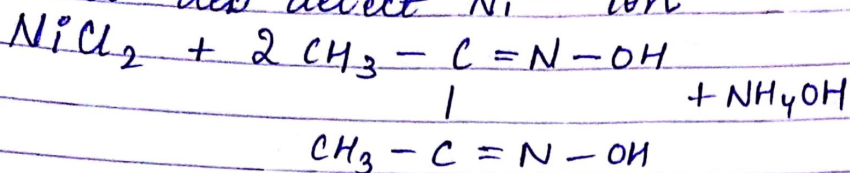 detect Ni ion
NiCl2 + 2 CH3 - C = N - OH
|
+ NH4OH
CH3 - C = N - OH